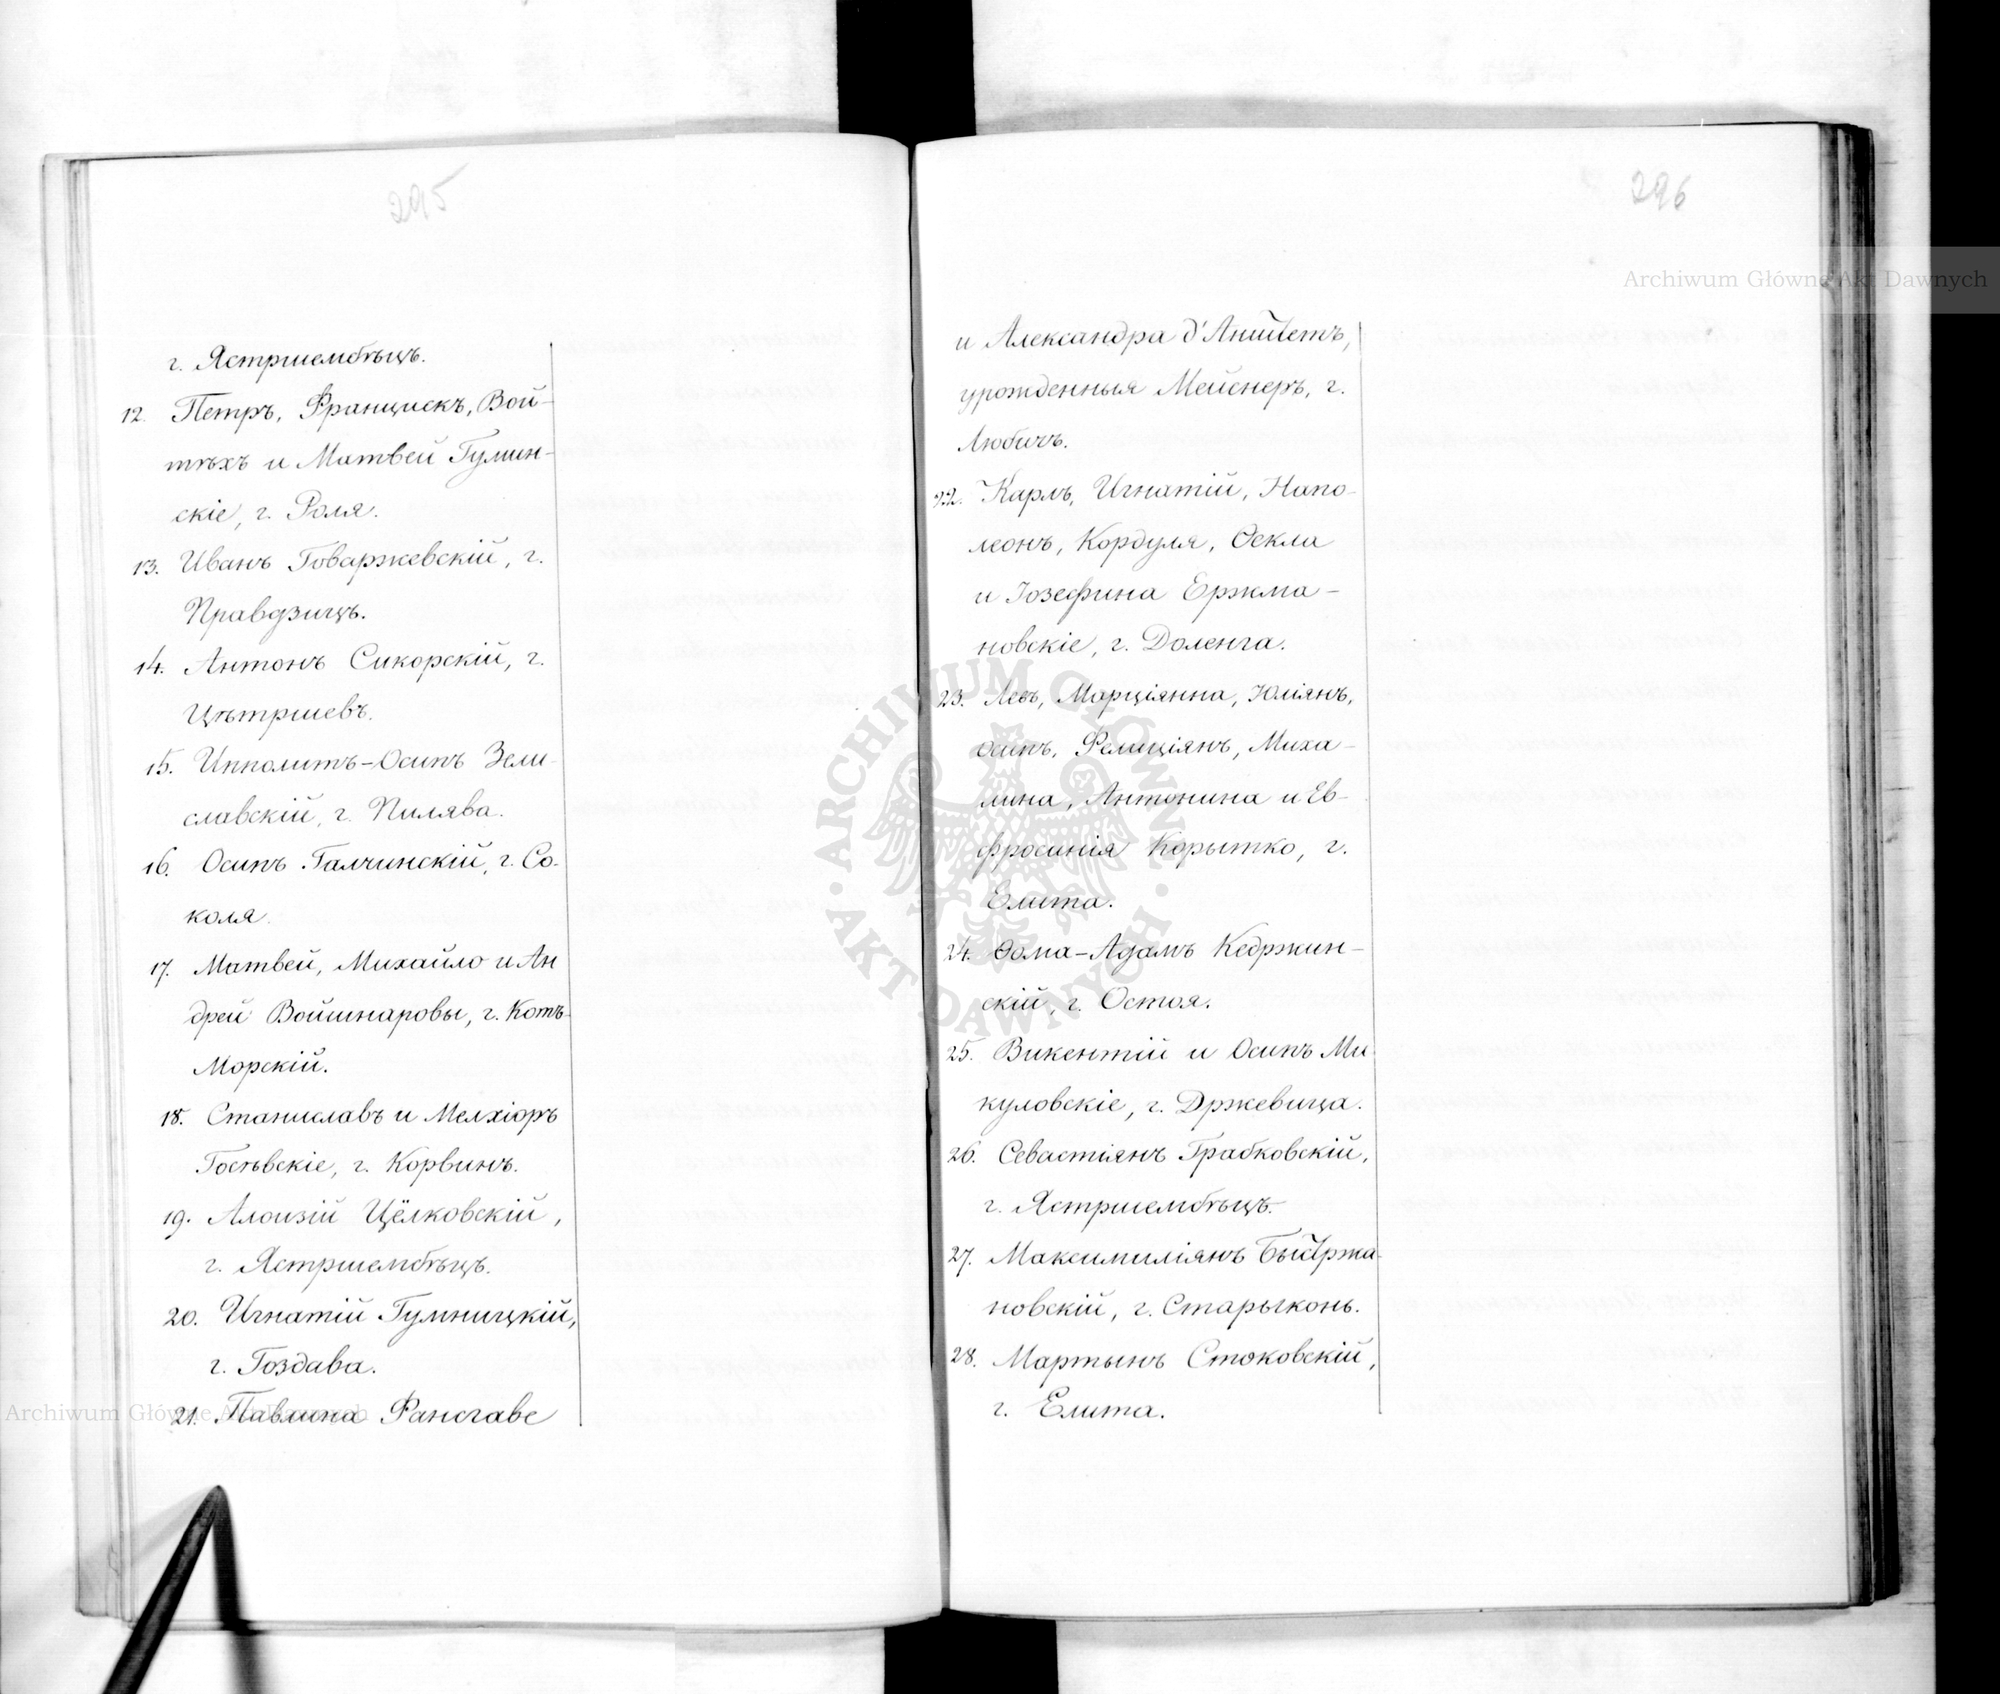 295
г. Ястршембѣцъ.
12. Петръ, Францискъ, Вой-
тѣхъ и Матвей Гумин-
скіе, г. Роля.
13. Иванъ Говаржевскій, г.
Правдзицъ.
14. Антонъ Сикорскій, г.
Цѣтршевъ.
15. Ипполитъ-Осипъ Зели-
славскій, г. Пилява.
16. Осипъ Галчинскій, г. Со-
коля.
17. Матвей, Михайло и Ан
дрей Войшнаровы, г. Котъ-
Морскій.
18. Станиславъ и Мелхіоръ
Госѣвскіе, г. Корвинъ.
19. Алоизій Цёлковскій,
г. Ястршембѣцъ.
20. Игнатій Гумницкій,
г. Гоздава.
21. Павлина Рансгаве
296
и Александра
урожденныя Мейснеръ, г.
Любичъ.
22. Карлъ, Игнатій, Напо-
леонъ, Кордуля, Ѳекла
и Іозефина Ержма-
новскіе, г. Доленга.
23. Левъ, Марціянна, Юліянъ,
Осипъ, Фелиціянъ, Миха-
лина, Антонина и Ев-
фросинія Корытко, г.
Елита.
24. Ѳома-Адамъ Кедржин-
скій, г. Остоя.
25. Викентій и Осипъ Ми
куловскіе, г. Држевица.
26. Севастіянъ Грабковскій,
г. Ястршембѣцъ.
27. Максимиліянъ Быстржа-
новскій, г. Старыконь.
28. Мартынъ Стоковскій,
г. Елита.
Archiwum Główne Akt Dawnych
ARCHIWUM GŁÓWNE · AKT DAWNYCH ·
Archiwum Główne Akt Dawnych